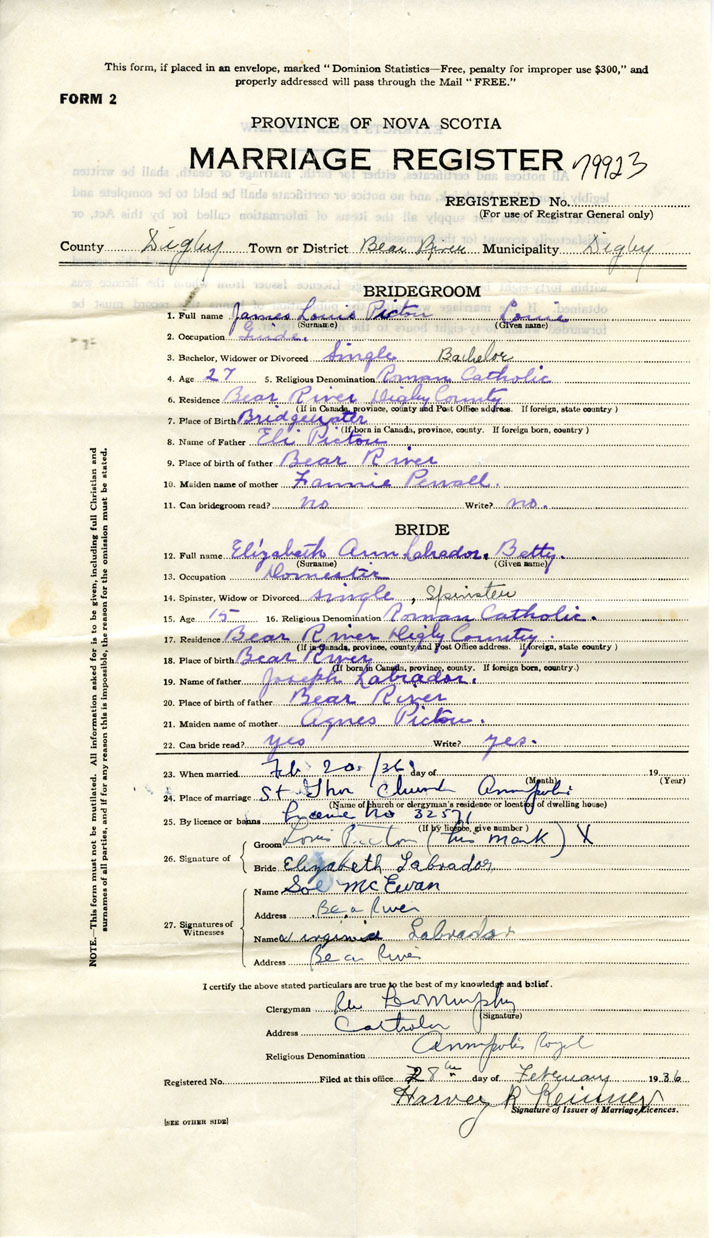 This form, if placed in an envelope, marked "Dominion Statistics—Free, penalty for improper use $300," and
properly addressed will pass through the Mail "FREE."
FORM 2
PROVINCE OF NOVA SCOTIA
MARRIAGE REGISTER 79923
REGISTERED No.
(For use of Registrar General only)
County Digby Town or District Bear River Municipality Digby
BRIDEGROOM
1. Full name James Louis Pictou Louie
(Surname) (Given name)
2. Occupation Guide.
3. Bachelor, Widower or Divorced Single Bachelor
4. Age 27 5. Religious Denomination Roman Catholic
6. Residence Bear River Digby County
(If in Canada, province, county and Post Office address. If foreign, state country)
7. Place of Birth Bridgewater
(If born in Canada, province, county. If foreign born, country)
8. Name of Father Eli Pictou
9. Place of birth of father Bear River
10. Maiden name of mother Fannie Penall.
11. Can bridegroom read? no Write? no.
BRIDE
12. Full name Elizabeth Ann Labrador. Betty.
(Surname) (Given name)
13. Occupation Domestic
14. Spinster, Widow or Divorced single, Spinster
15. Age 15 16. Religious Denomination Roman Catholic.
17. Residence Bear River Digby County.
(If in Canada, province, county and Post Office address. If foreign, state country)
18. Place of birth Bear River
(If born in Canada, province, county. If foreign born, country.)
19. Name of father Joseph Labrador.
20. Place of birth of father Bear River
21. Maiden name of mother Agnes Pictou.
22. Can bride read? yes Write? yes.
23. When married Feb 20/36 day of 19
(Month) (Year)
24. Place of marriage St Church Annapolis
(Name of church or clergyman's residence or location of dwelling house)
25. By licence or banns License No 32571
(If by licence, give number)
26. Signature of
Groom Louis Pictou (his mark) X
Bride Elizabeth Labrador
27. Signatures of Witnesses
Name Sol McEwan
Address Bear River
Name Virginia Labrador
Address Bear River
I certify the above stated particulars are true to the best of my knowledge and belief.
Clergyman Rev Murphy
(Signature)
Address Catholic
Religious Denomination Annapolis Royal
Registered No. Filed at this office 28th day of February 1936
Harvey R
Signature of Issuer of Marriage Licences.
[SEE OTHER SIDE]
NOTE.—This form must not be mutilated. All information asked for is to be given, including full Christian and
surnames of all parties, and if for any reason this is impossible, the reason for the omission must be stated.